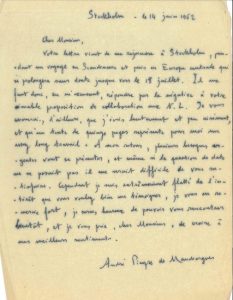 Stockholm - le 14 juin 1962
Cher Monsieur,
Votre lettre vient de me rejoindre à Stockholm, pen-
dant un voyage en Scandinavie et puis en Europe centrale qui
se prolongera sans doute jusque vers le 15 juillet. Il me
faut donc, en ce moment, répondre par la négative à votre
aimable proposition de collaboration aux N. L. Je vous
avouerai, d'ailleurs, que j'écris lentement et peu aisément,
et qu'un texte de quinze pages représente pour moi un
assez long travail. A mon retour, plusieurs besognes ur-
gentes vont se présenter, et même si la question de date
ne se posait pas il me serait difficile de vous sa-
tisfaire. Cependant je suis extrêmement flatté de l'in-
térêt que vous voulez bien me témoigner, je vous en re-
mercie fort, je serai heureux de pouvoir vous rencontrer
bientôt, et je vous prie, cher Monsieur, de croire à
mes meilleurs sentiments.
André Pieyre de Mandiargues